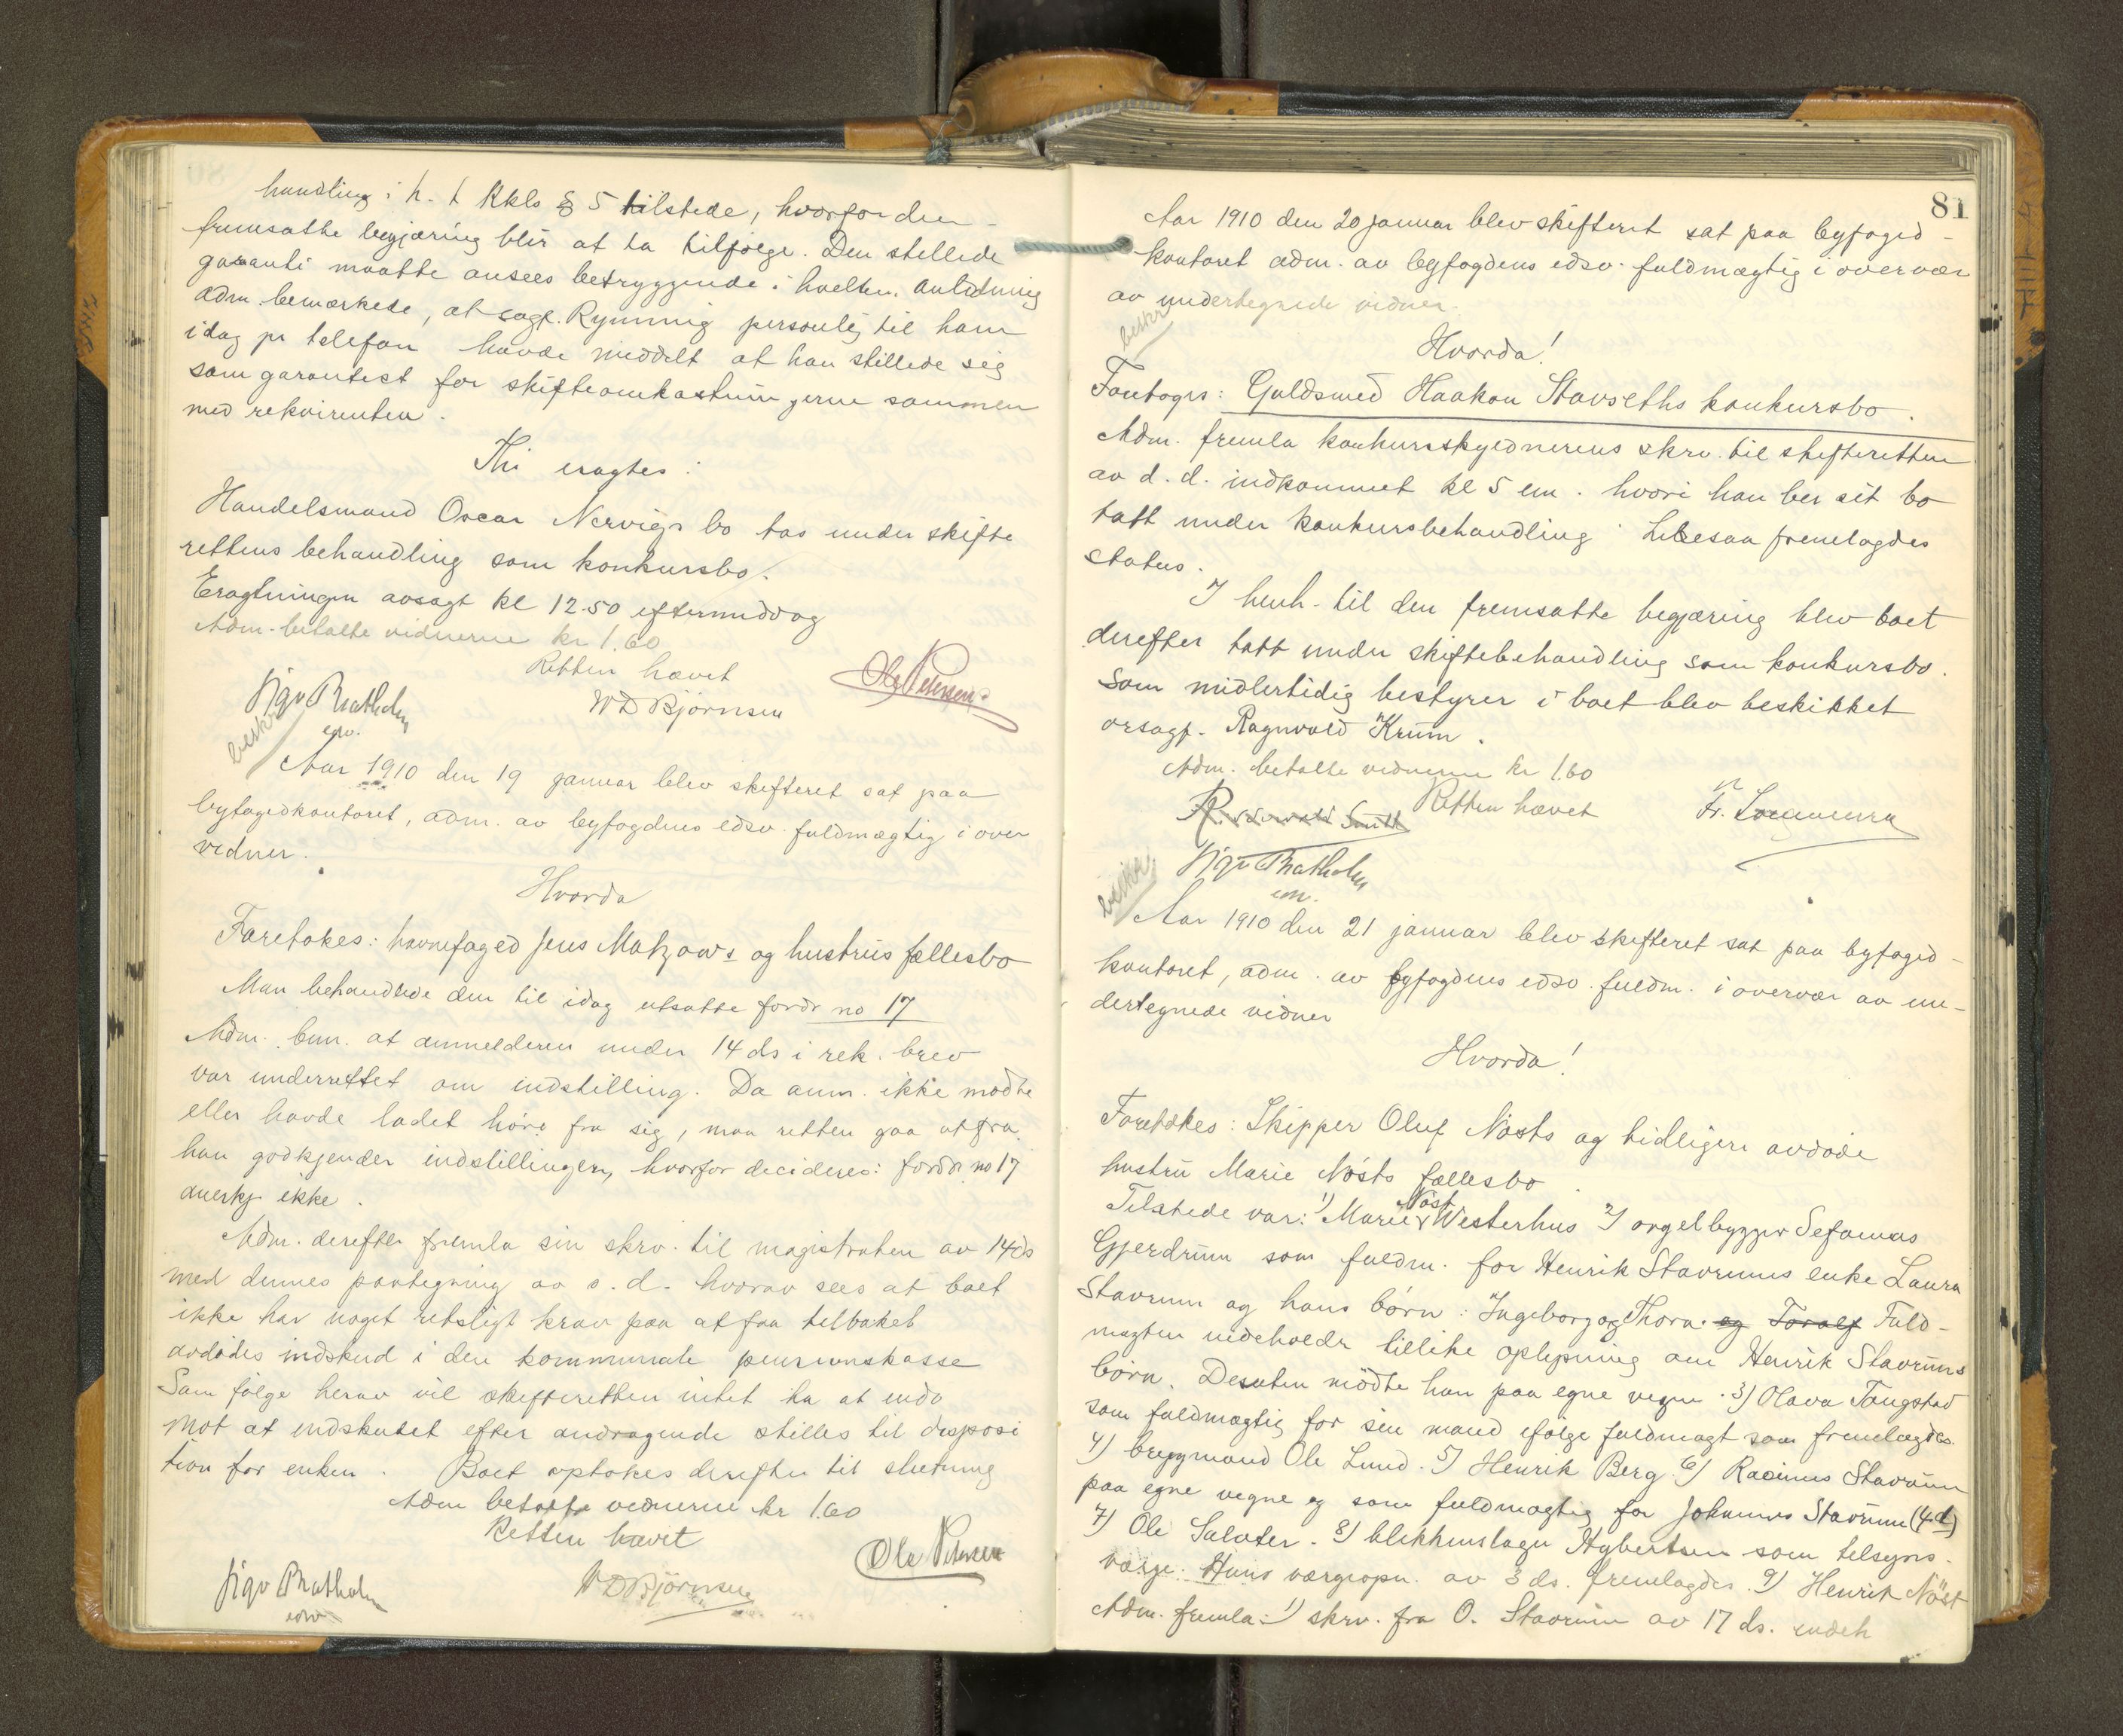 handling i h. t Kkls § 5 tilstede, hvorfor den
fremsatte begjæring blir at ta tilfølge. Den stillede
garanti maatte ansees betryggende i hvelken anledning
Adm. bemærkede, at sagf. Rynning personlig til ham
idag pr telefon havde meddelt at han stillede sig
som garantist for skifteomkostningerne sammen
med rekvirenten.
Thi eragtes:
Handelsmand Oscar Nervigs bo tas under skifte
rettens behandling som konkursbo.
Eragtningen avsagt kl 12.50 eftermiddag
Adm. betalte vidnerne kr 1.60
Retten hævet
Sigv Bratholm
edsv.
W D Bjørnsen
Ole Petersen
beskr
Aar 1910 den 19 januar blev skifteret sat paa
byfogedkontoret, adm. av byfogdens edsv. fuldmægtig i over
vidner.
Hvorda
Foretokes: havnefoged Jens Matzows og hustrus fællesbo
Man behandlede den til idag utsatte fordr no 17
Adm. bem. at anmelderen under 14 ds i rek. brev
var underrettet om indstilling. Da anm. ikke mødte
eller havde ladet høre fra sig, maa retten gaa ut fra
han godkjender indstillingen, hvorfor decideres: fordr. no 17
anerkj. ikke.
Adm. derefter fremla sin skrv. til magistraten av 14 ds
med dennes paategning av s. d. hvorav sees at boet
ikke har noget retsligt krav paa at faa tilbaket
avdødes indskud i den kommunale pensionskasse
Som følge herav vil skifteretten intet ha at indv
mot at indskudet efter andragende stilles til disposi
tion for enken. Boet optokes derefter til slutning
Adm betalte vidnerne kr 1.60
Retten hævet
Sigv Bratholm
edsv
W D Bjørnsen
Ole Petersen
81
Aar 1910 den 20 januar blev skifteret sat paa byfoged-
kontoret adm. av byfogdens edsv. fuldmægtig i overvær
av undertegnede vidner.
beskr
Hvorda!
Foretoges: Guldsmed Haakon Stavseths konkursbo.
Adm. fremla konkursskyldnerens skrv. til skifteretten
av d. d. indkommet kl 5 em. hvori han ber sit bo
tatt under konkursbehandling. Likesaa fremlagdes
status.
I henh. til den fremsatte begjæring blev boet
derefter tatt under skiftebehandling som konkursbo.
Som midlertidig bestyrer i boet blev beskikket
orsagf. Ragnvald Krum.
Adm. betalte vidnerne kr 1.60
Retten hævet
Sigv Bratholm
edsv.
beskr
Aar 1910 den 21 januar blev skifteret sat paa byfoged-
kontoret, adm. av byfogdens edsv. fuldm. i overvær av un-
dertegnede vidner
Hvorda!
Foretokes: Skipper Oluf Nøsts og tidligere avdøde
hustru Marie Nøsts fællesbo.
Tilstede var: 1) Marie Nøst Westerhus 2) orgelbygger Sefanias
Gjerdrum som fuldm. for Henrik Stavrums enke Laura
Stavrum og hans børn: Ingeborg og Thora og Toralf Fuld-
magten indeholdr tillike oplysning om Henrik Stavrums
børn. Desuten mødte han paa egne vegne. 3) Olava Tangstad
som fuldmægtig for sin mand ifølge fuldmagt som fremlægdes.
4) bryggmand Ole Lund. 5) Henrik Berg. 6) Rasinus Stavrum
paa egne vegne og som fuldmægtig for Johannes Stavrum (4d)
7) Ole Salater. 8) blikkenslager Hybertsen som tilsyns-
værge. Hans værgeopn. av 3 ds. fremlagdes. 9) Henrik Nøst
Adm. fremla: 1) skrv. fra O. Stavrum av 17 ds. indeh